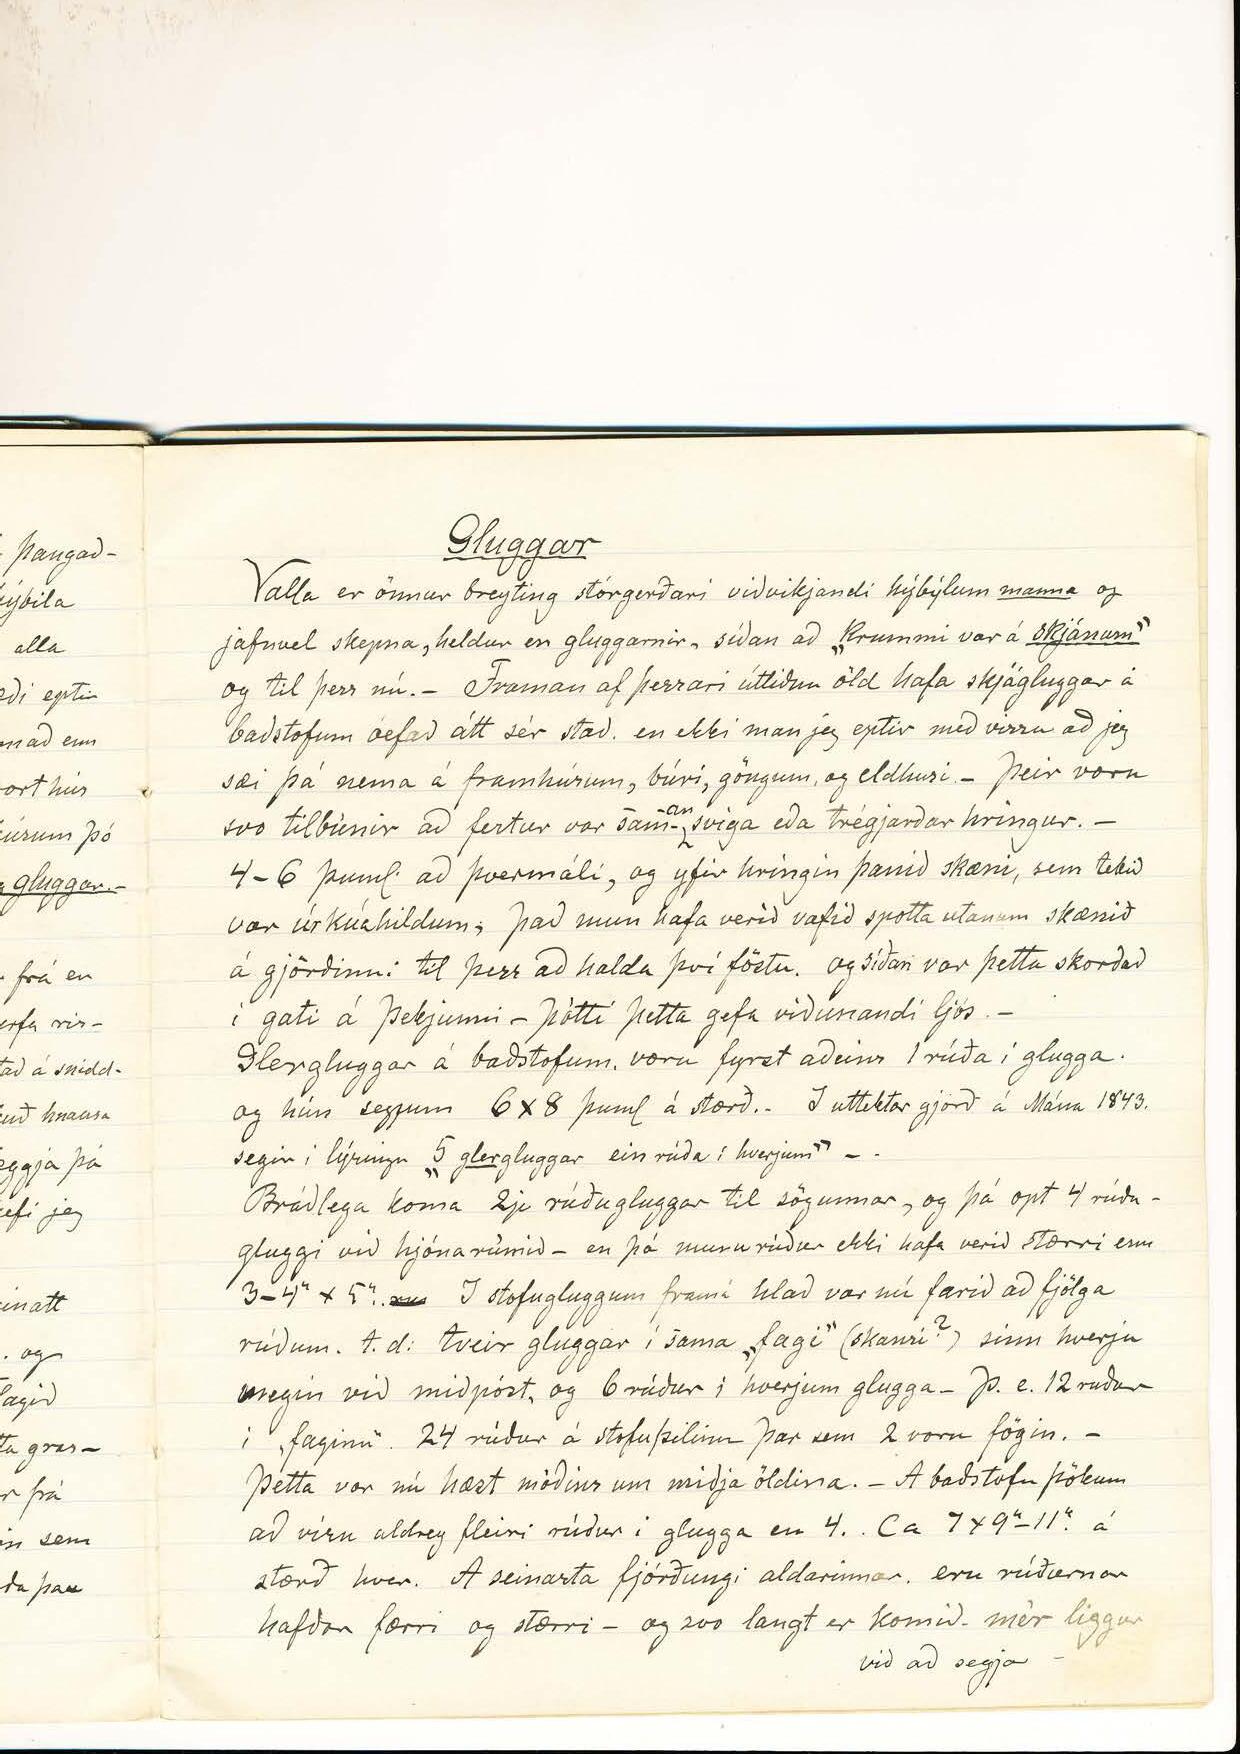 þangað-
hýbíla
alla
eptir
enn
hús
húsum þó
gluggar.-
frá en
ris-
að á snidd-
hnausa
leggja þá
hefi jeg
og
lagið
gras-
frá
sem
Gluggar
Valla er önnur breyting stórgerðari viðvíkjandi hýbýlum manna og
jafnvel skepna, heldur en gluggarnir, síðan að „Krummi var á skjánum"
og til þess nú. - Framan af þessari útliðnu öld hafa skjágluggar á
baðstofum óefað átt sér stað. en ekki man jeg eptir með vissu að jeg
sæi þá nema á framhúsum, búri, göngum, og eldhúsi. - Þeir voru
svo tilbúnir að fertur var saman-sviga eða trégjarðar hringur. -
4-6 þuml. að þvermáli, og yfir hringin þanið skæni, sem tekið
var úr kúahildum; það mun hafa verið vafið spotta utanum skænið
á gjörðinni til þess að halda því föstu. og síðan var þetta skorðað
í gati á þekjunni - þótti þetta gefa viðunandi ljós. -
Glergluggar á baðstofum. voru fyrst aðeins 1 rúða í glugga.
og hún segjum 6 x 8 þuml á stærð. - I úttektar gjörð á Mána 1843.
segir í lýsingu „5 glergluggar ein rúða í hverjum" - .
Bráðlega koma 2ja rúðugluggar til sögunnar, og þá opt 4 rúðu-
gluggi við hjónarúmið - en þá munu rúður ekki hafa verið stærri enn
3-4" x 5". I stofugluggum framá hlað var nú farið að fjölga
rúðum. t.d: tveir gluggar í sama „fagi" (skansi?) sinn hverju
megin við miðpóst, og 6 rúður í hverjum glugga - Þ. e. 12 rúður
í „faginu". 24 rúður á stofuþilinu þar sem 2 voru fögin. -
Þetta var nú hæst móðins um miðja öldina. - A baðstofu þökum
að vísu aldrey fleiri rúður í glugga en 4. Ca 7 x 9"-11". á
stærð hver. A seinasta fjórðungi aldarinnar. eru rúðurnar
hafðar færri og stærri - og svo langt er komið - mér liggur
við að segja -